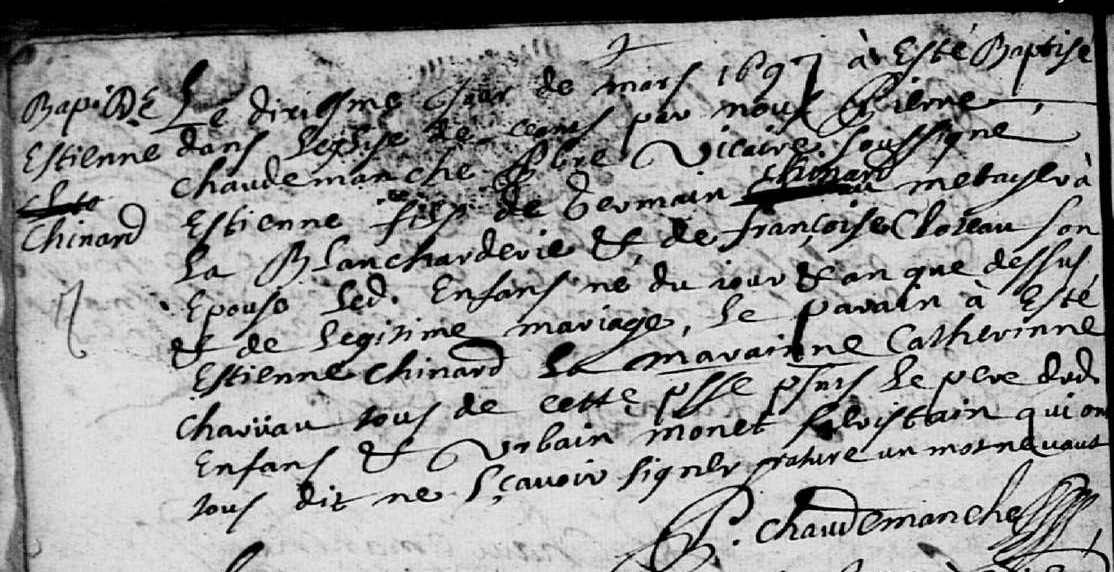 Bap. De
Estienne
Chinard
Le dixiesme jour de mars 1697 à Esté Baptisé
dans Leglise de ceans par nous Pierre
chaudemanche Pbre Vicaire soussigné
Estienne fils de Germain chinard metayer à
La Blancharderie & de françoise Cloteau son
Epouse led. Enfans né du jour & an que dessus,
& de legitime mariage, Le parain à Esté
Estienne chinard La maraine Catherinne
Charüau tous de cette psse psnts Le pere dud.
Enfans & Urbain monet sacristain qui on
tous dit ne sçavoir signer rature un mot ne vaut
P. chaudemanche